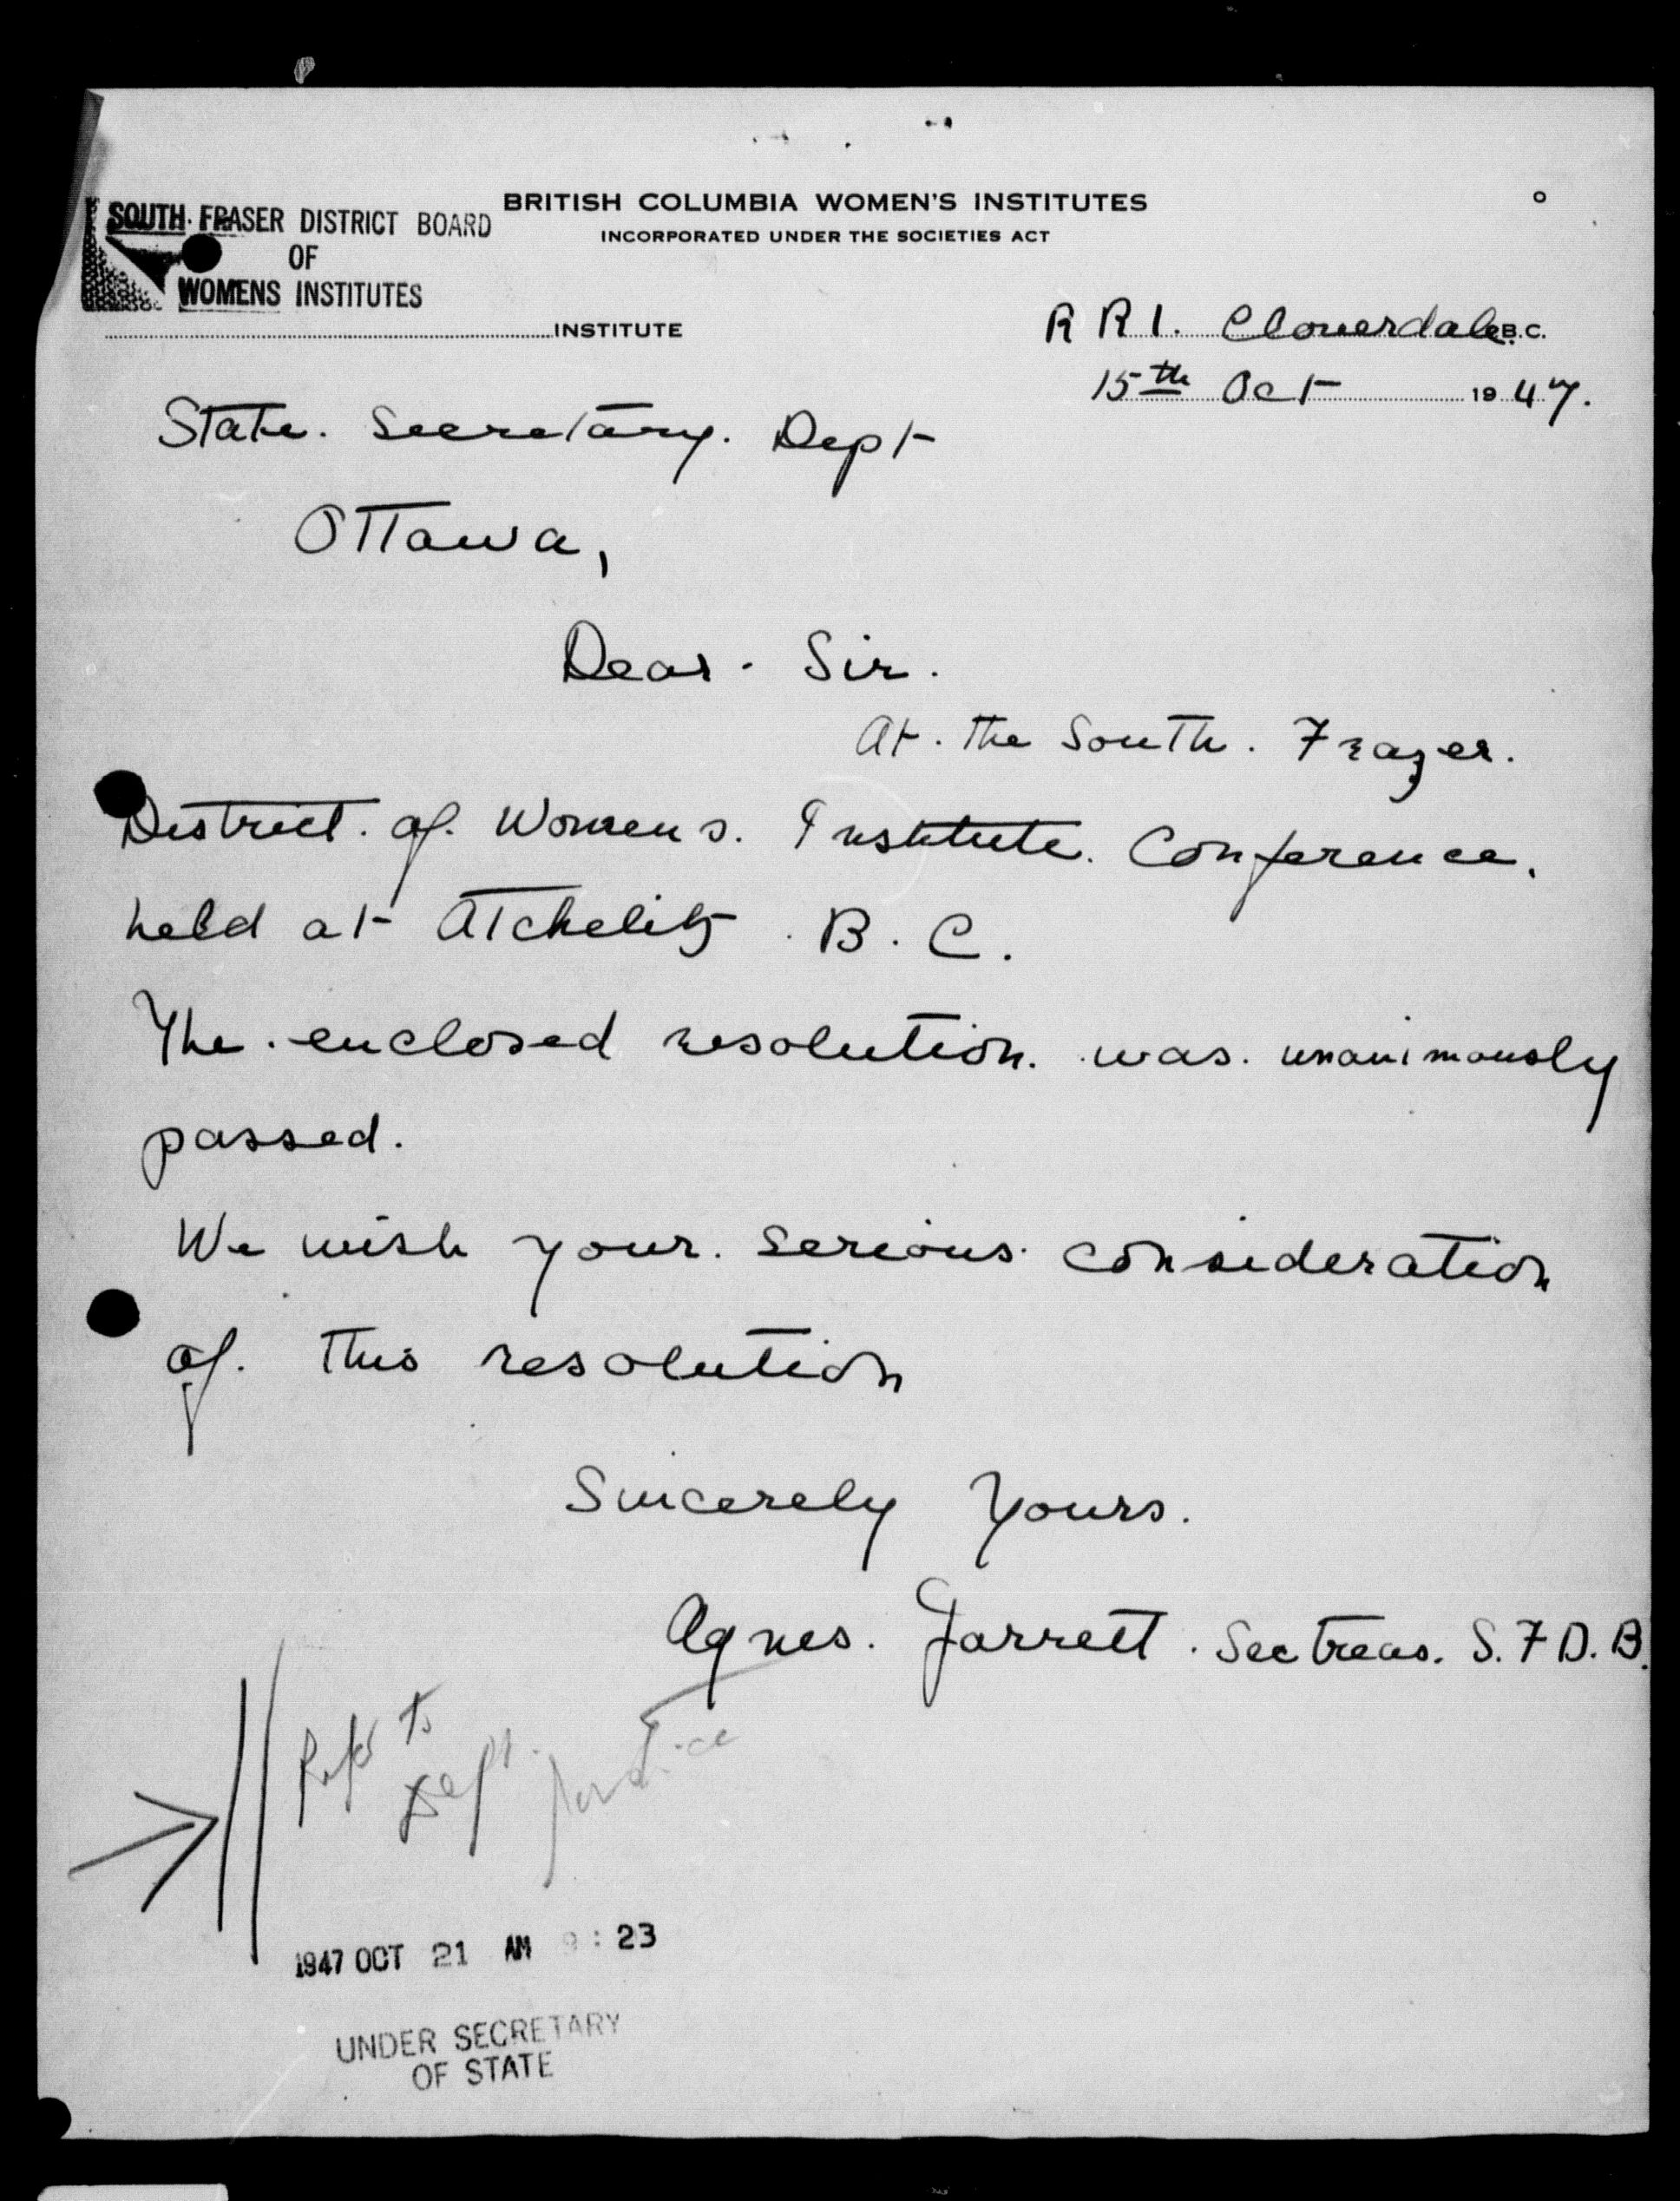 BRITISH COLUMBIA WOMEN'S INSTITUTES
INCORPORATED UNDER THE SOCIETIES ACT
SOUTH FRASER DISTRICT BOARD
OF
WOMENS INSTITUTES
INSTITUTE
R R 1. Cloverdale B.C.
15th Oct 1947.
State. Secretary. Dept
Ottawa,
Dear. Sir.
At. the South. Frazer.
District. of. Womens. Institute. Conference.
held at Atchelitz. B.C.
The. enclosed resolution. was. unanimously
passed.
We wish your. serious. consideration
of. this resolution
Sincerely Yours.
Agnes. Jarrett. Sec treas. S. F D. B.
Refer to
Dept. Justice
1947 OCT 21 AM 9:23
UNDER SECRETARY
OF STATE